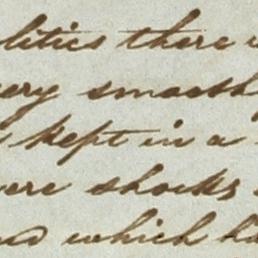 olitics there
very smooth
kept in a
were shocks
which ha